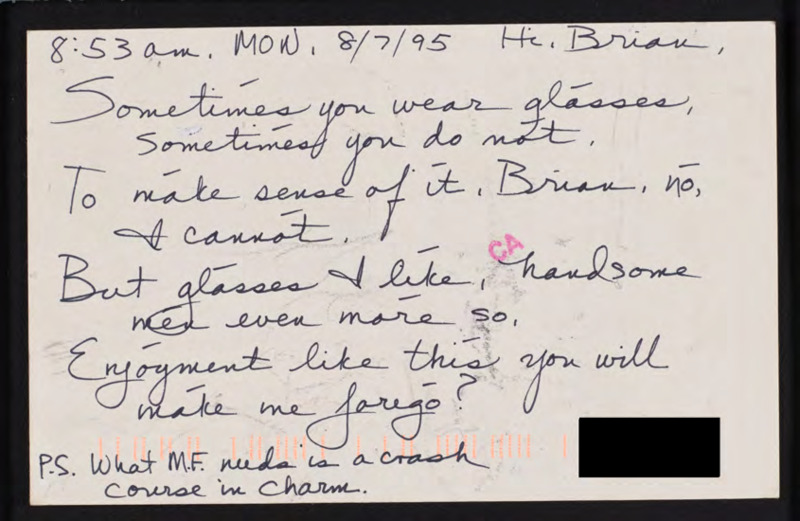 8:53 am. MON. 8/7/95 Hi, Brian,
Sometimes you wear glásses,
Sometimes you do nót.
To máke sense of it, Brian, nó,
I cannót.
But glásses I líke, handsome
CA
men even móre so.
Enjóyment like thís you will
máke me foregó?
P.S. What M.F. needs is a crash
course in charm.